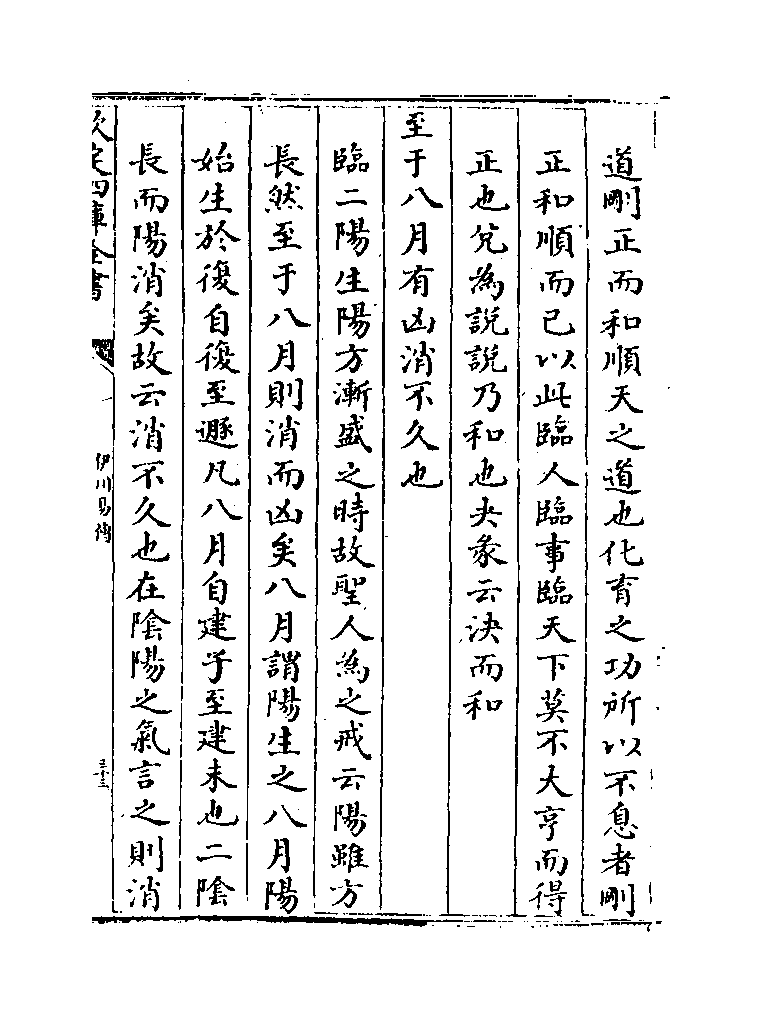 道剛正而和順天之道也化育之功所以不息者剛
正和順而已以此臨人臨事臨天下莫不大亨而得
正也兌為說說乃和也夬彖云決而和
至于八月有凶消不久也
臨二陽生陽方漸盛之時故聖人為之戒云陽雖方
長然至于八月則消而凶矣八月謂陽生之八月陽
始生於復自復至遯凡八月自建子至建未也二陰
長而陽消矣故云消不久也在陰陽之氣言之則消
欽定四庫全書
伊川易傳
三十三